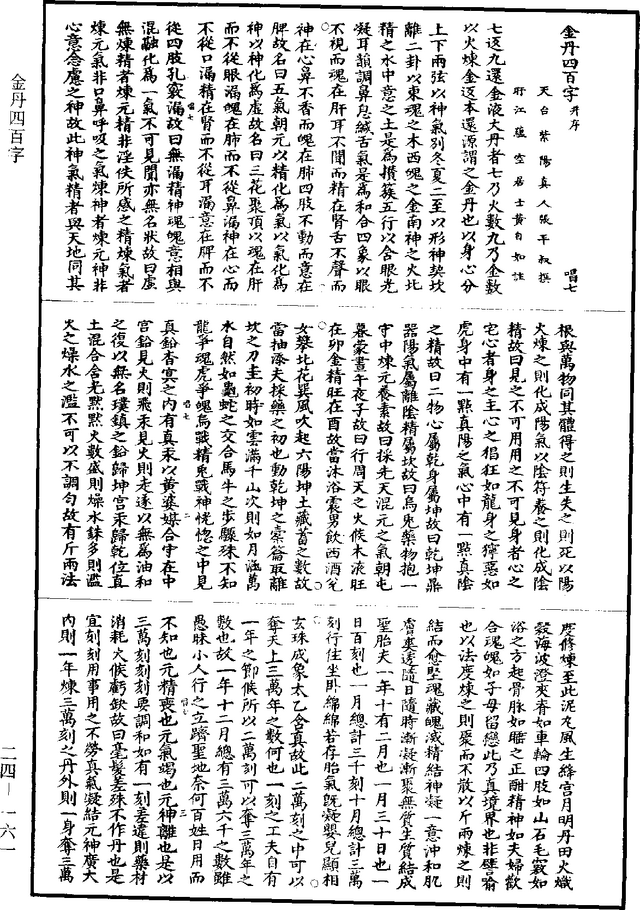 金丹四百字
金丹四百字并序
唱七
天台紫陽真人張平叔撰
盱江蘊空居士黃自如註
七返九還金液大丹者七乃火數九乃金數
以火煉金返本還源謂之金丹也以身心分
上下兩弦以神氣別冬夏二至以形神契坎
離二卦以東魂之木西魄之金南神之火北
精之水中意之土是為攢簇五行以含眼光
凝耳韻調鼻息緘舌氣是為和合四象以眼
不視而魂在肝耳不聞而精在腎舌不聲而
神在心鼻不香而魄在肺四肢不動而意在
脾故名曰五氣朝元以精化為氣以氣化為
神以神化為虛故名曰三花聚頂以魂在肝
而不從眼漏魄在肺而不從鼻漏神在心而
不從口漏精在腎而不從耳漏意在脾而不
從四肢孔竅漏故曰無漏精神魂魄意相與
混融化為一氣不可見聞亦無名狀故曰虛
無煉精者煉元精非淫佚所感之精煉氣者
煉元氣非口鼻呼吸之氣煉神者煉元神非
心意念慮之神故此神氣精者與天地同其
根與萬物同其體得之則生失之則死以陽
火煉之則化成陽氣以陰符養之則化成陰
精故曰見之不可用用之不可見身者心之
宅心者身之主心之猖狂如龍身之獰惡如
虎身中有一點真陽之氣心中有一點真陰
之精故曰二物心屬乾身屬坤故曰乾坤鼎
器陽氣屬離陰精屬坎故曰烏兔藥物抱一
守中煉元養素故曰採先天混元之氣朝屯
暮蒙晝午夜子故曰行周天之火候木液旺
在卯金精旺在酉故當沐浴震男飲西酒兌
女攀北花巽風吹起六陽坤土藏蓄之數故
當抽添夫採藥之初也動乾坤之橐籥取離
坎之刀圭初時如雲滿千山次則如月涵萬
水自然如龜蛇之交合馬牛之步驟殊不知
龍爭魂虎爭魄烏戰精兔戰神恍惚之中見
真鉛杳冥之內有真汞以黃婆媒合守在中
宮鉛見火則飛汞見火則走遂以無為油和
之復以無名璞鎮之鉛歸坤宮汞歸乾位真
土混合含光默默火數盛則燥水銖多則濫
火之燥水之濫不可以不調勻故有斤兩法
度修煉至此泥丸風生絳宮月明丹田火熾
穀海波澄夾脊如車輪四肢如山石毛竅如
浴之方起骨脉如睡之正酣精神如夫婦歡
合魂魄如子母留戀此乃真境界也非譬喻
也以法度煉之則聚而不散以斤兩煉之則
結而愈堅魂藏魄滅精結神凝一意沖和肌
膚爽透隨日隨時漸凝漸聚無質生質結成
聖胎夫一年十有二月也一月三十日也一
日百刻也一月總計三千刻十月總計三萬
刻行住坐臥綿綿若存胎氣既凝嬰兒顯相
玄珠成象太乙含真故此三萬刻之中可以
奪天上三萬年之數何也一刻之工夫自有
一年之節候所以三萬刻可以奪三萬年之
數也故一年十二月總有三萬六千之數雖
愚昧小人行之立躋聖地奈何百姓日用而
不知也元精喪也元氣竭也元神離也是以
三萬刻刻刻要調和如有一刻差違則藥材
消耗火候虧缺故曰毫髮差殊不作丹也是
宜刻刻用事用之不勞真氣凝結元神廣大
內則一年煉三萬刻之丹外則一身奪三萬
二四—一六一